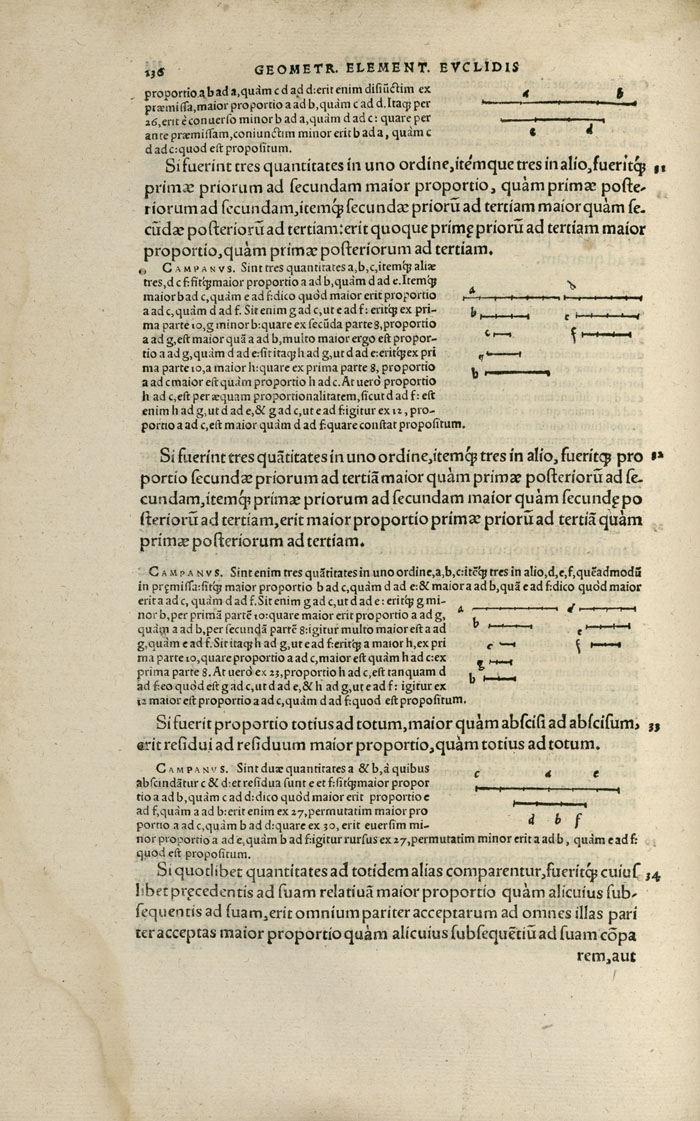 136 GEOMETR. ELEMENT. EVCLIDIS
proportio a b ad a, quàm c d ad d: erit enim disiũctim ex
præmissa, maior proportio a ad b, quàm c ad d. Itaq; per
26, erit è conuerso minor b ad a, quàm d ad c: quare per
ante præmissam, coniunctim minor erit b ad a, quàm c
d ad c: quod est propositum.
a b
c d
Si fuerint tres quantitates in uno ordine, itémque tres in alio, fueritq́; 31
primæ priorum ad secundam maior proportio, quàm primæ poste-
riorum ad secundam, itemq́; secundæ priorũ ad tertiam maior quàm se-
cũdæ posteriorũ ad tertiam: erit quoque primę priorũ ad tertiam maior
proportio, quàm primæ posteriorum ad tertiam.
CAMPANVS. Sint tres quantitates a, b, c, itemq́; aliæ
tres, d e f: sitq́; maior proportio a ad b, quàm d ad e. Itemq́;
maior b ad c, quàm e ad f: dico quòd maior erit proportio
a ad c, quàm d ad f. Sit enim g ad c, ut e ad f: eritq́; ex pri-
ma parte 10, g minor b: quare ex secũda parte 8, proportio
a ad g, est maior quã a ad b, multo maior ergo est propor-
tio a ad g, quàm d ad e: sit itaq; h ad g, ut d ad e: eritq́; ex pri
ma parte 10, a maior h: quare ex prima parte 8, proportio
a ad c maior est quàm proportio h ad c. At uerò proportio
h ad c, est per æquam proportionalitatem, sicut d ad f: est
enim h ad g, ut d ad e, & g ad c, ut e ad f: igitur ex 12, pro-
portio a ad c, est maior quàm d ad f: quare constat propositum.
a d
b e
c f
g
h
Si fuerint tres quãtitates in uno ordine, itemq́; tres in alio, fueritq́; pro 32
portio secundæ priorum ad tertiã maior quàm primæ posteriorũ ad se-
cundam, itemq́; primæ priorum ad secundam maior quàm secundę po
steriorũ ad tertiam, erit maior proportio primæ priorũ ad tertiã quàm
primæ posteriorum ad tertiam.
CAMPANVS. Sint enim tres quãtitates in uno ordine, a, b, c: itẽq́; tres in alio, d, e, f, quẽadmodũ
in pręmissa: sitq́; maior proportio b ad c, quàm d ad e: & maior a ad b, quã e ad f: dico quòd maior
erit a ad c, quàm d ad f. Sit enim g ad c, ut d ad e: eritq́; g mi-
nor b, per primã partẽ 10: quare maior erit proportio a ad g,
quàm a ad b, per secundã partẽ 8: igitur multo maior est a ad
g, quàm e ad f. Sit itaq; h ad g, ut e ad f: eritq́; a maior h, ex pri
ma parte 10, quare proportio a ad c, maior est quàm h ad c: ex
prima parte 8. At uerò ex 23, proportio h ad c, est tanquam d
ad f: eo quòd est g ad c, ut d ad e, & h ad g, ut e ad f: igitur ex
12 maior est proportio a ad c, quàm d ad f: quod est propositum.
a d
b e
c f
g
h
Si fuerit proportio totius ad totum, maior quàm abscisi ad abscisum, 33
erit residui ad residuum maior proportio, quàm totius ad totum.
CAMPANVS. Sint duæ quantitates a & b, à quibus
abscindãtur c & d: et residua sunt e et f: sitq́; maior propor
tio a ad b, quàm c ad d: dico quòd maior erit proportio e
ad f, quàm a ad b: erit enim ex 27, permutatim maior pro
portio a ad c, quàm b ad d: quare ex 30, erit euersim mi-
nor proportio a ad e, quàm b ad f: igitur rursus ex 27, permutatim minor erit a ad b, quàm e ad f:
quod est propositum.
c a e
d b f
Si quotlibet quantitates ad totidem alias comparentur, fueritq́; cuius 34
libet pręcedentis ad suam relatiuã maior proportio quàm alicuius sub-
sequentis ad suam, erit omnium pariter acceptarum ad omnes illas pari
ter acceptas maior proportio quàm alicuius subsequẽtiũ ad suam cõpa
rem, aut